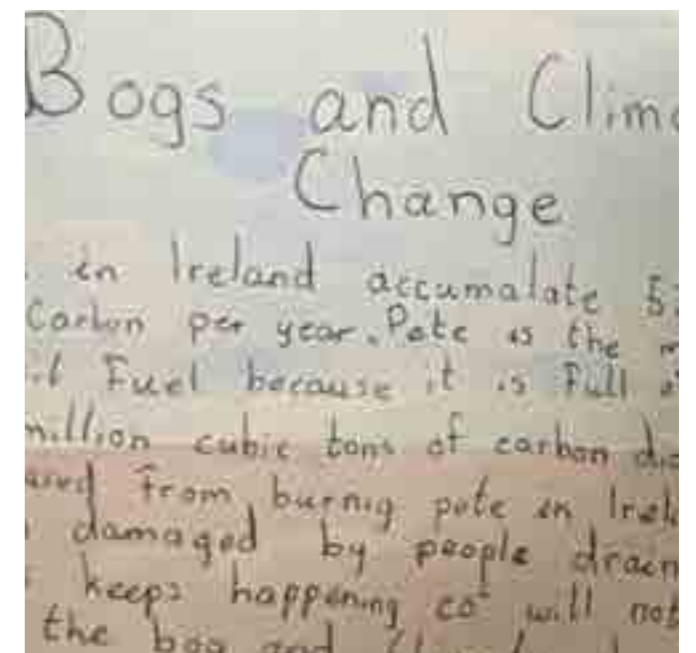 Bogs and Clim
Change
in Ireland accumalate
Carbon per year. Pete is the m
Fuel because it is Full
million cubic tons of carbon dio
from burnig pete in Irel
damaged by people drain
keeps happening co² will not
the bog and